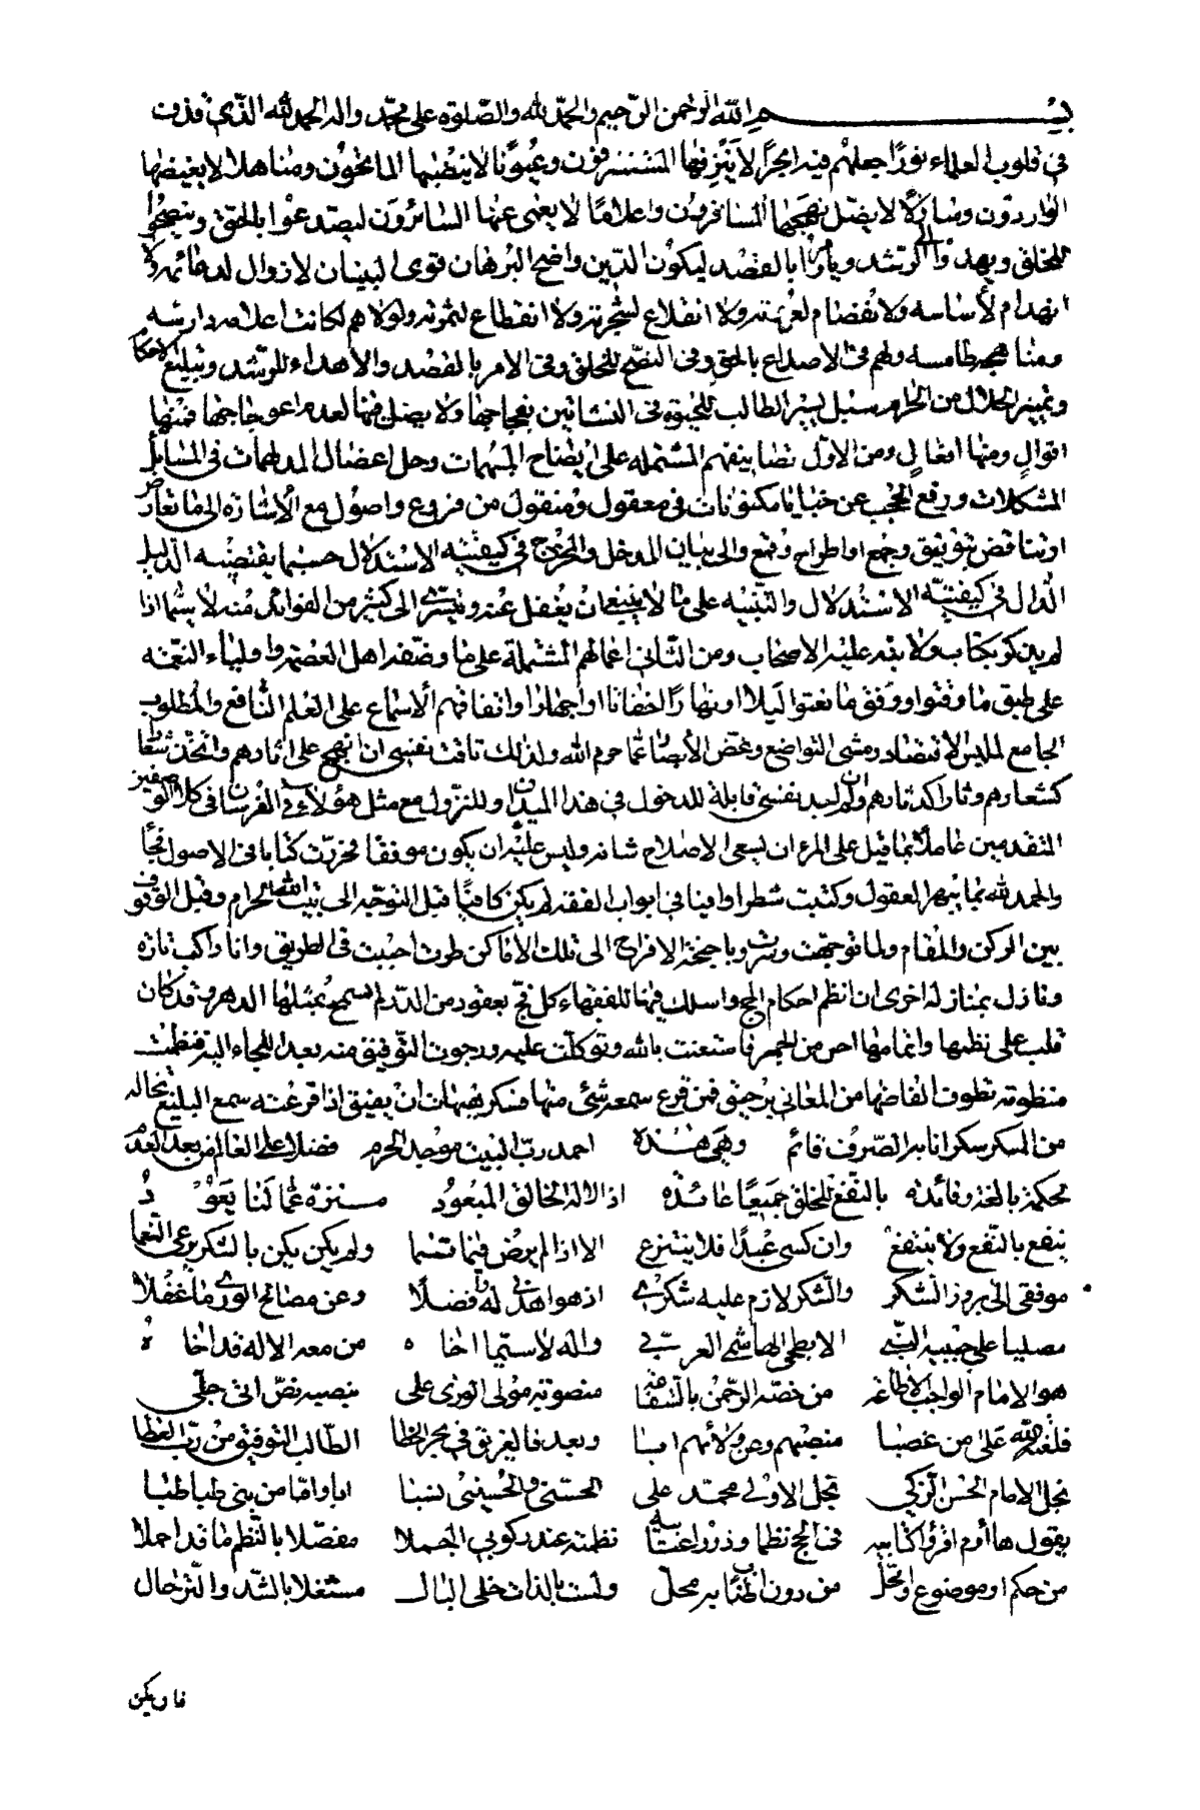 بسم الله الرحمن الرحيم والحمد لله والصلوة على محمد واله الحمد لله الذي قذف
في قلوب العلماء نورا جعلهم فيه ابحرا لا ينزفها المستنزفون وعيونا لا ينضبها الماتحون ومناهلا لا يغيضها
الواردون ومسالكا لا يضل نهجها المسافرون واعلاما لا يعمى عنها السائرون ليصدعوا بالحق وينصحوا
للخلق ويهدوا الى الرشد ويأمروا بالقصد ليكون الدين واضح البرهان قوي البنيان لا زوال لدعائمه ولا
انهدام لأساسه ولا انفصام لعروته ولا انقلاع لشجرته ولا انقطاع لثمرته ولولاهم لكانت اعلامه دارسه
ومناهجه طامسه ولهم في الاصداع بالحق وفي النصح للخلق وفي الامر بالقصد والاهداء للرشد وتبليغ الاحكام
وتمييز الحلال من الحرام سبل يسير الطالب للحيوة في النشاتين بفجاجها ولا يضل فيها لعدم اعوجاجها فمنها
اقوال ومنها افعال ومن الاول تصانيفهم المشتمله على ايضاح المبهمات وحل اعضال المدلهمات في المسائل
المشكلات ورفع الحجب عن خبايا مكنونات في معقول ومنقول من فروع واصول مع الاشارة الى ما تعارض
او تناقض بتوفيق وجمع او اطراح وقمع والى بيان المدخل والمخرج في كيفيته الاستدلال حسبما يقتضيه الدليل
الدال في كيفيته الاستدلال والتنبيه على ما لا ينبغي ان يغفل عنه ويسرى الى كثير من الفوائد منه لا سيما اذا
لم يذكر بكتاب ولا نبه عليه الاصحاب ومن الثاني اعمالهم المشتملة على ما وصفه اهل العصمه واولياء النعمه
على طبق ما وقتوا ووفق ما نعتوا ليلا او نهارا اخفاتا او اجهارا وانفاقهم الاسماع على العلم النافع والمطلوب
الجامع لملبس الاقتصاد ومشى التواضع وغض الأبصار عما حرم الله ولذلك تاقت نفسي ان انهج على اثارهم واتخذ شعارا
كشعارهم ودثارا كدثارهم وان لم تكن نفسي قابلة للدخول في هذا الميدان وللنزول مع مثل هؤلاء في الفرسان في كلا الوصفين
المتقدمين عاملا بما قيل على المرء ان يسعى لاصلاح شانه وليس عليه ان يكون موفقا فحررت كتابا في الاصول فجأ
والحمد لله بما يبهر العقول وكتبت شطرا وافيا في ابواب الفقه لم يكن كافيا قبل التوجه الى بيت الله الحرام وقبل الوقوف
بين الركن والمقام ولما توجهت وسرت وباجنحة الافراح الى تلك الاماكن طرت احببت في الطريق وانا راكب تارة
ونازل بمنازله اخرى ان انظم احكام الحج واسلك فيها للفقهاء كل فج بعقود من الدر لم يسمح بمثلها الدهر وقد كان
قلب على نظمها واتمامها احر من الجمر فاستعنت بالله وتوكلت عليه ورجوت التوفيق منه بعد اللجاء اليه فنظمت
منظومة تطوف الفاظها من المعاني برحيق فمن قرع سمعه شئ منها فسكر هيهات ان يفيق اذا قرعت سمع البليغ تخاله
من السكر سكرانا به الصرف قائم وهي هذه احمد رب البيت موجد الحرم فضلا على العالم من بعد العدم
نحكمة بالغة وفائدته بالنفع للخلق جميعا عائده اذ الاله الخالق المعبود منزه عما لنا يعود
ينفع بالنفع ولا ينتفع وان كسى عبدا فلا ينتزع الا اذا لم يرض فيما قسما ولم يكن يكن بالشكر يرعى النعما
موفقي الى بروز الشكر والشكر لازم عليه شكرى اذ هو اهدى لي له وافضلا وعن مصالح الورى ما غفلا
مصليا على حبيبه النبي الابطحي الهاشمي العربي واله لا سيما اخاه من معه الاله قد اخاه
هو الامام الواجب الاطاعه من خصه الرحمن بالشفاعه منصوبه مولى الورى على بنصبه نص اتى جلي
فلعنة الله على من غصبا منصبهم وعن ولائهم ابا وبعد فالغريق في بحر الخطا الطالب التوفيق من رب العطا
نجل الامام الحسن الزكي نجل الاولى محمد على الحسني والحسيني نسبا ابا واما من بني طباطبا
يقول هاأوم اقرؤا كتابيه في الحج نظما وذروا عتابيه نظمته عند ركوبي الجملا مفصلا بالنظم ما قد اجملا
من حكم او موضوع او محل من دون اطناب به محل ولست بالذات خلي البال مشتغلا بالشد والترحال
فان يكن